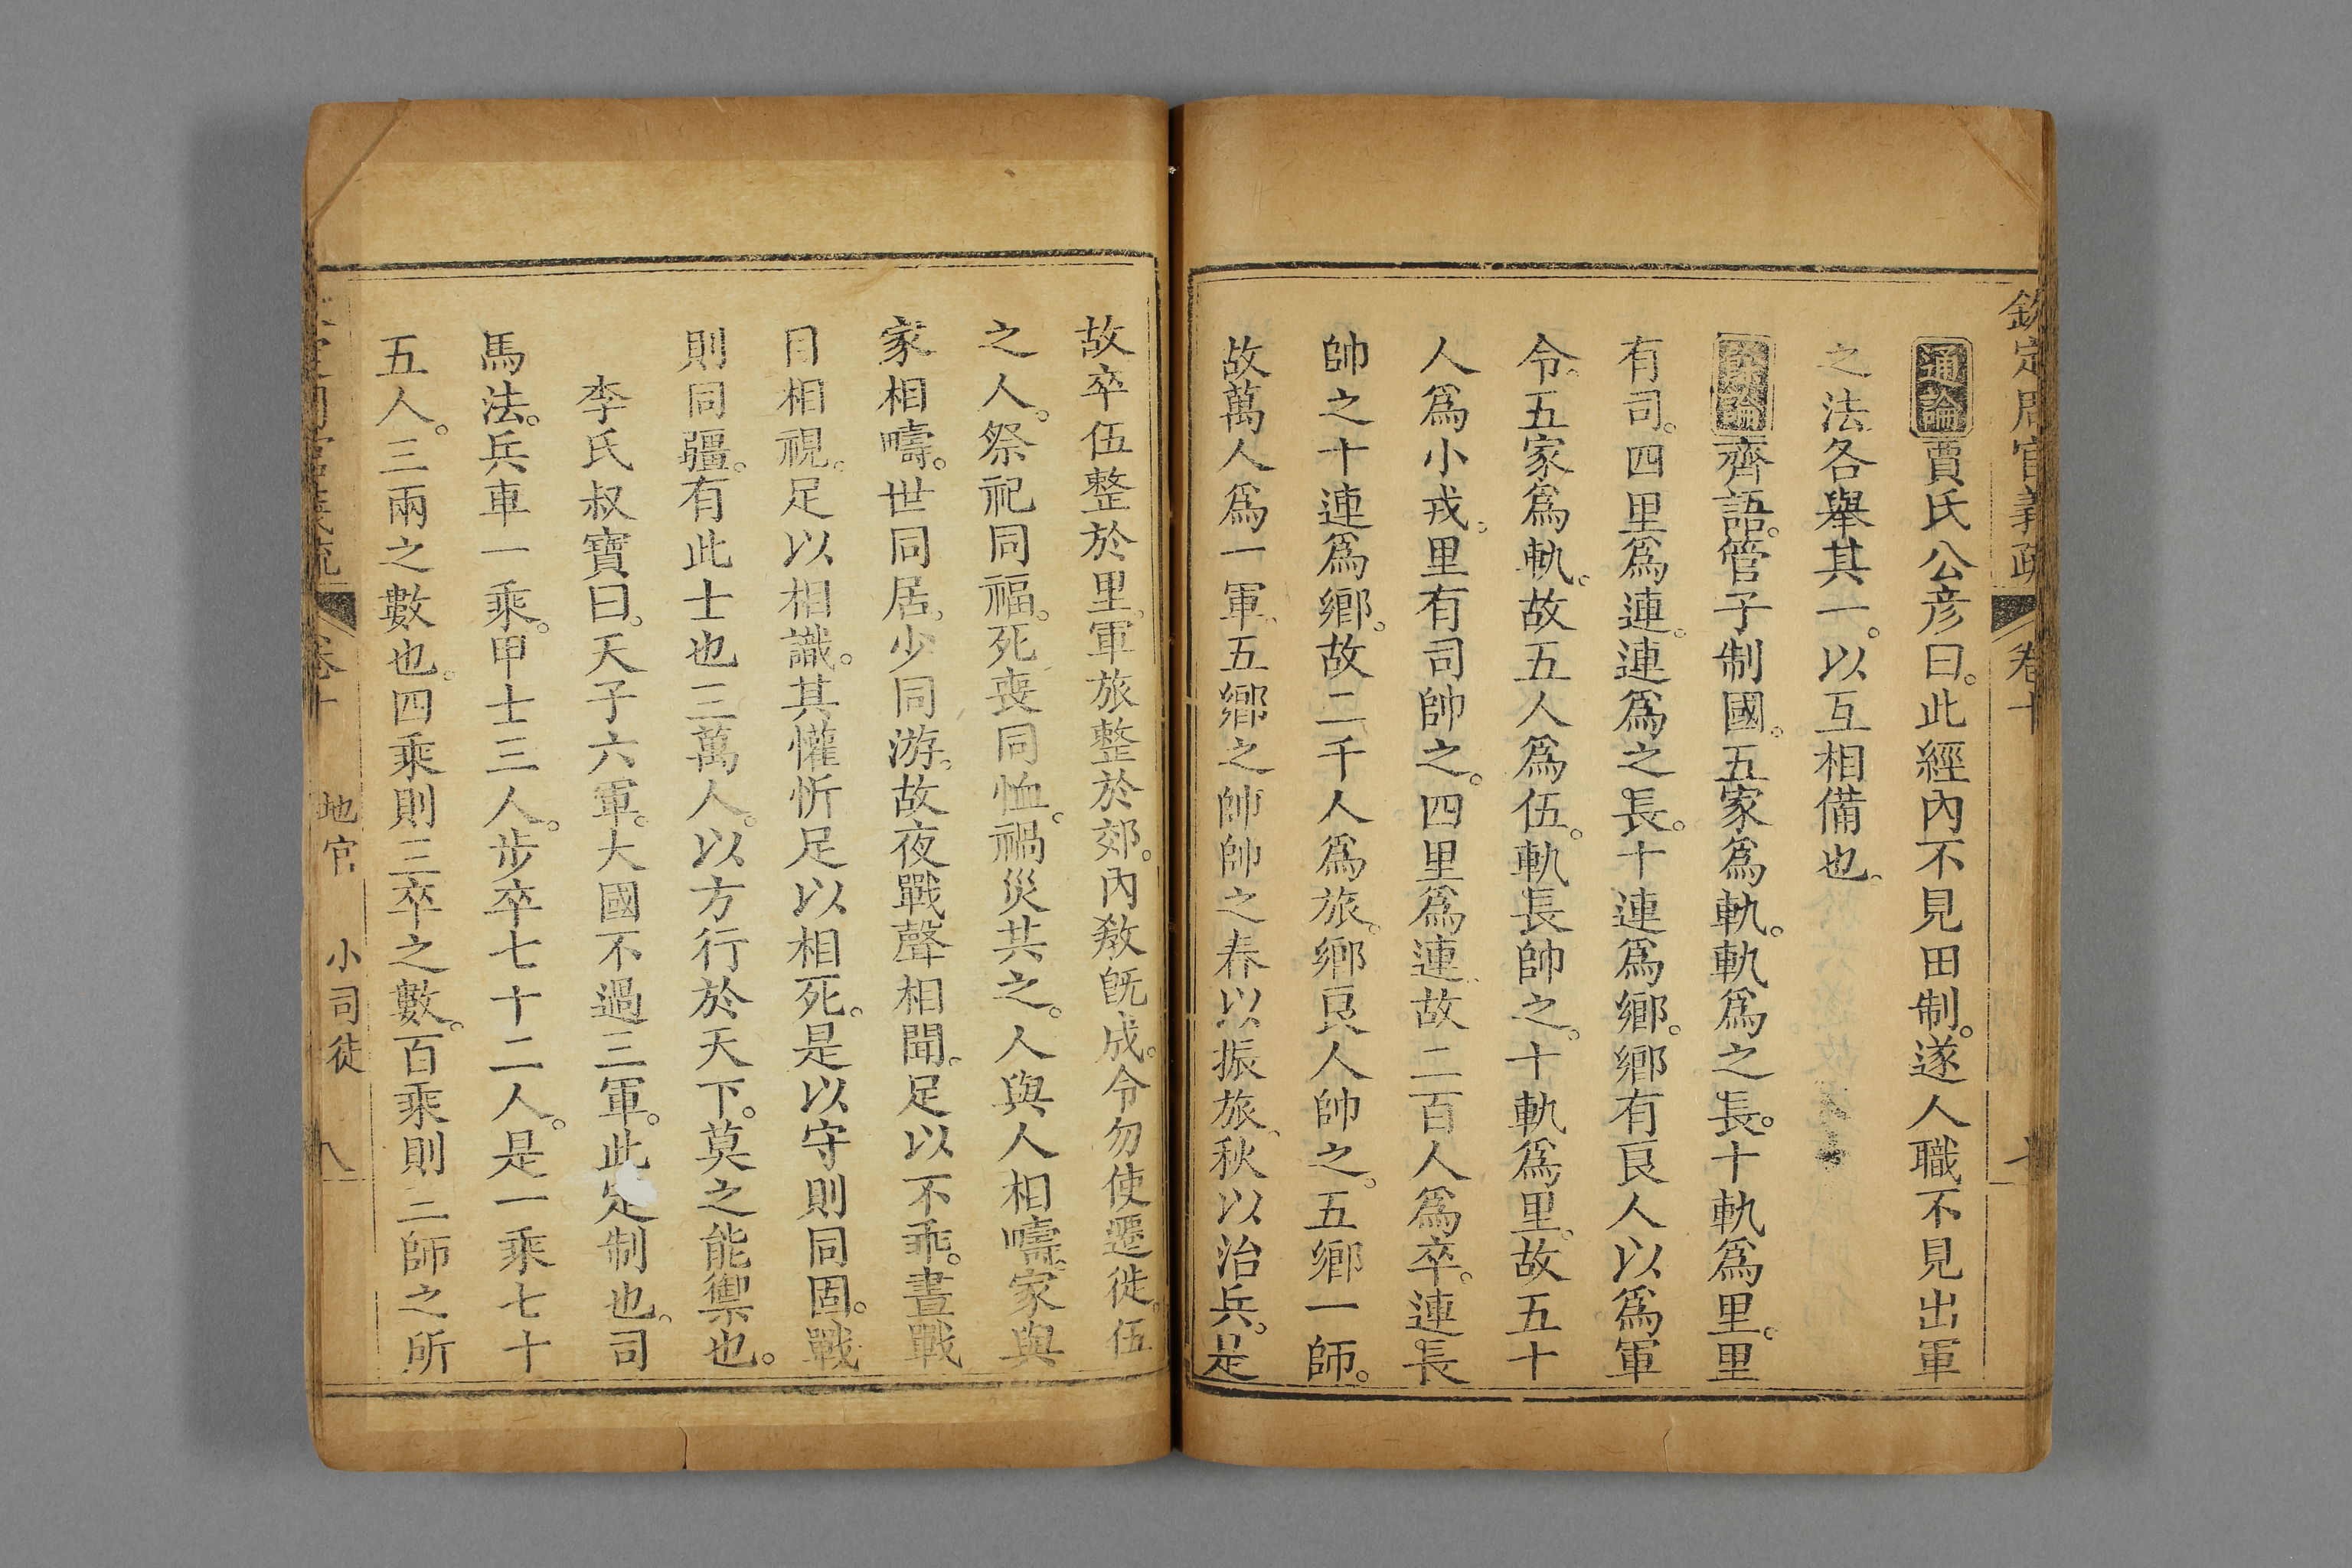 欽定周官義疏 卷十
通論賈氏公彦曰。此經內不見田制。遂人職不見出軍
之法各舉其一。以互相備也。
餘論齊語。管子制國。五家爲軌。軌爲之長。十軌爲里。里
有司。四里爲連。連爲之長。十連爲鄉。鄉有良人以爲軍
令。五家爲軌。故五人爲伍。軌長帥之。十軌爲里。故五十
人爲小戎。里有司帥之。四里爲連。故二百人爲卒。連長
帥之十連爲鄉。故二千人爲旅。鄉良人帥之。五鄉一師。
故萬人爲一軍。五鄉之帥帥之春以振旅。秋以治兵。是
故卒伍整於里。軍旅整於郊。內敎旣成。令勿使遷徙。伍
之人。祭祀同福。死喪同恤。禍災共之。人與人相疇。家與
家相疇。世同居。少同游。故夜戰聲相聞。足以不乖。晝戰
目相視。足以相識。其懽忻足以相死。是以守則同固。戰
則同彊。有此士也三萬人。以方行於天下。莫之能禦也。
李氏叔寶曰。天子六軍。大國不過三軍。此定制也。司
馬法。兵車一乘。甲士三人。步卒七十二人。是一乘七十
五人。三兩之數也。四乘則三卒之數。百乘則三師之所
卷十 地官 小司徒 八